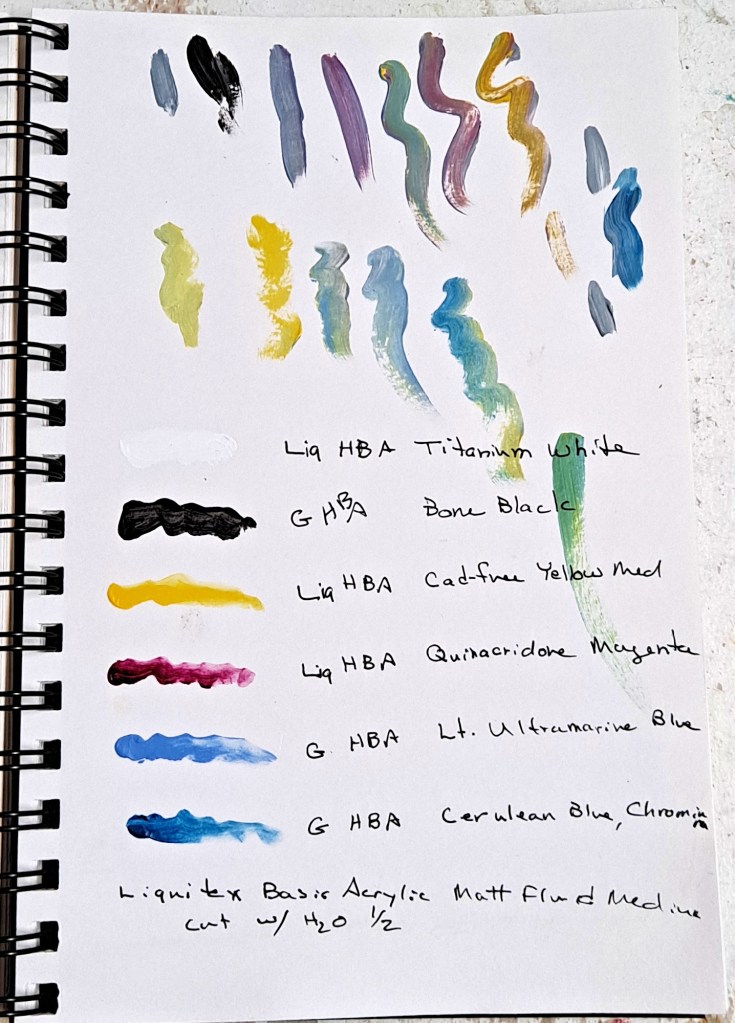 Liq HBA Titanium White
G HBA Bone Black
Liq HBA Cad-free Yellow Med
Liq HBA Quinacridone Magenta
G. HBA Lt. Ultramarine Blue
G HBA Cerulean Blue, Chromium
Liquitex Basic Acrylic Matt Fluid Medium
cut w/ H2O 1/2